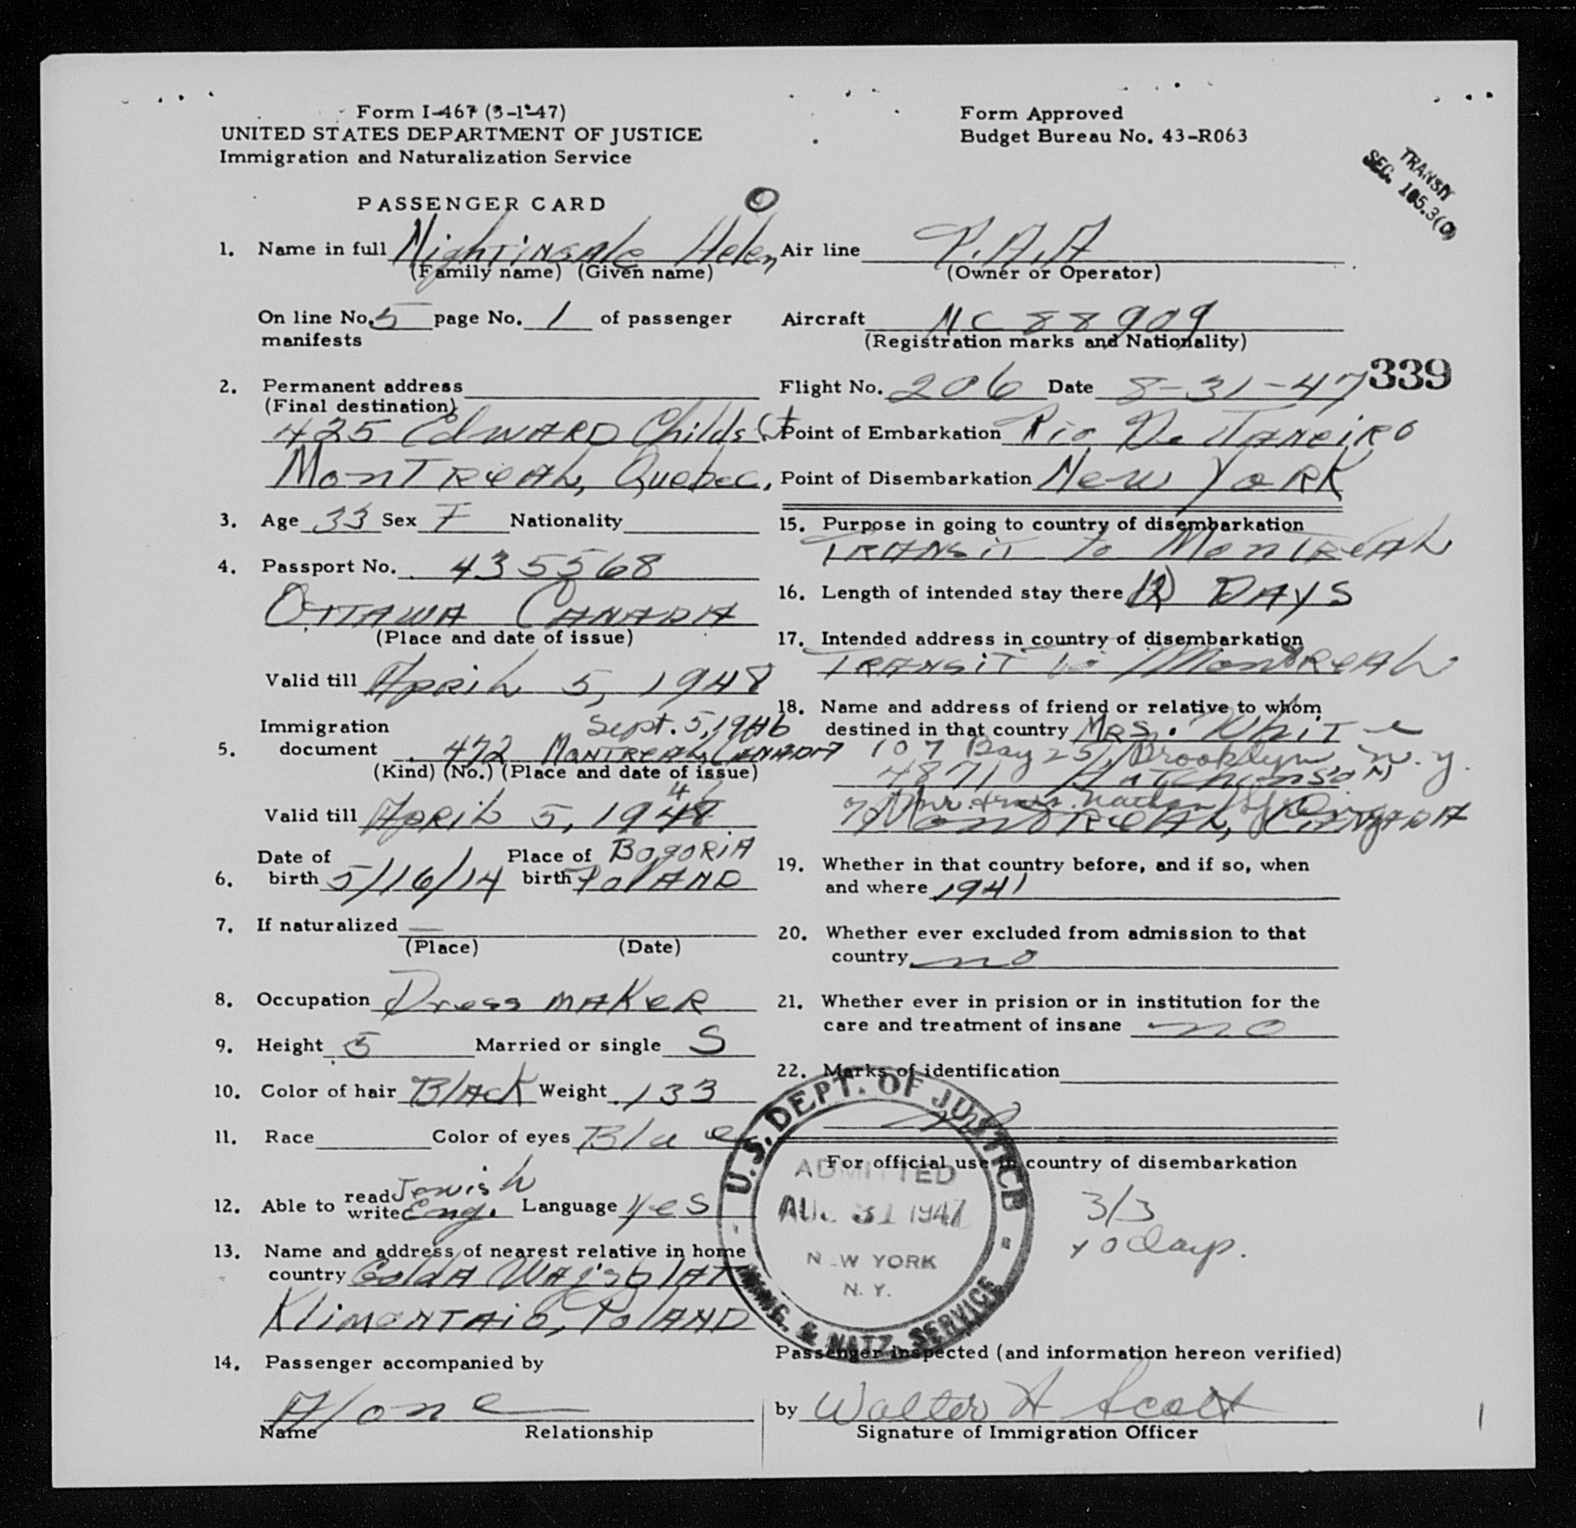 Form I-467 (3-1-47)
UNITED STATES DEPARTMENT OF JUSTICE
Immigration and Naturalization Service
Form Approved
Budget Bureau No. 43-R063
TRANSIT
SEC. 105.3(C)
PASSENGER CARD
1. Name in full Nightingale Helen
(Family name) (Given name)
On line No. 5 page No. 1 of passenger
manifests
2. Permanent address
(Final destination)
425 Edward Childs St
Montreal, Quebec.
3. Age 33 Sex F Nationality
4. Passport No. 435568
Ottawa Canada
(Place and date of issue)
Valid till April 5, 1948
Sept. 5, 1946
5. Immigration
document 472 Montreal, Canada
(Kind) (No.) (Place and date of issue)
Valid till April 5, 1948
6. Date of birth 5/16/14 Place of birth Bogoria Poland
7. If naturalized —
(Place) (Date)
8. Occupation Dress maker
9. Height 5 Married or single S
10. Color of hair Black Weight 133
11. Race Color of eyes Blue
12. Able to read Jewish write Eng. Language Yes
13. Name and address of nearest relative in home
country Golda Wajsblat
Poland
14. Passenger accompanied by
Alone
Name Relationship
Air line P.A.A
(Owner or Operator)
Aircraft NC 88909
(Registration marks and Nationality)
Flight No. 206 Date 8-31-47 339
Point of Embarkation Rio De Janeiro
Point of Disembarkation New York
15. Purpose in going to country of disembarkation
Transit to Montreal
16. Length of intended stay there Days
17. Intended address in country of disembarkation
Transit to Montreal
18. Name and address of friend or relative to whom
destined in that country Mrs. White
107 Bay 25 Brooklyn N.Y.
4871 Hutchinson
Montreal, Canada
19. Whether in that country before, and if so, when
and where 1941
20. Whether ever excluded from admission to that
country no
21. Whether ever in prision or in institution for the
care and treatment of insane no
22. Marks of identification
For official use in country of disembarkation
U.S. DEPT. OF JUSTICE
ADMITTED
AUG 31 1947
NEW YORK
N. Y.
IMMG. & NATZ. SERVICE
3/3
days.
Passenger inspected (and information hereon verified)
by Walter A Scott
Signature of Immigration Officer